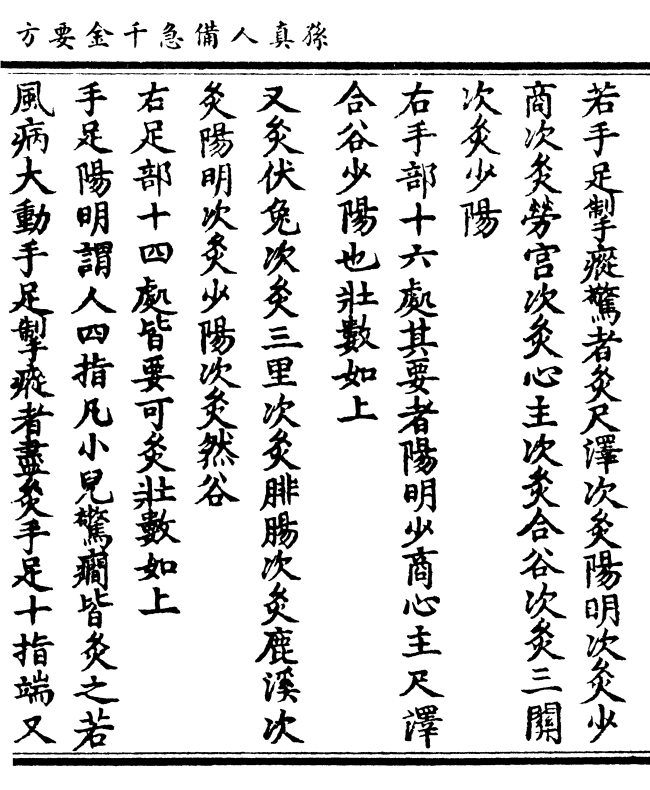 孫真人備急千金要方
若手足掣瘲驚者灸尺澤次灸陽明次灸少
商次灸勞宫次灸心主次灸合谷次灸三關
次灸少陽
右手部十六處其要者陽明少商心主尺澤
合谷少陽也壯數如上
又灸伏兔次灸三里次灸腓腸次灸鹿溪次
灸陽明次灸少陽次灸然谷
右足部十四處皆要可灸壯數如上
手足陽明謂人四指凡小兒驚癇皆灸之若
風病大動手足掣瘲者盡灸手足十指端又